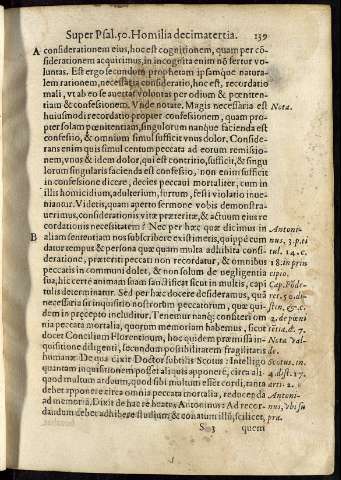 Super Psal. 50. Homilia decimatertia. 139
A considerationem eius, hoc est cognitionem, quam per cõ-
siderationem acquirimus, in incognita enim nõ fertur vo-
luntas. Est ergo secundum prophetam ipsamque natura-
lem rationem, necessaria consideratio, hoc est, recordatio
mali, vt ab eo se auertat voluntas per odium & pœniten-
tiam & confessionem. Vnde notate. Magis necessaria est Nota.
huiusmodi recordatio propter confessionem, quam pro-
pter solam pœnitentiam, singulorum nanque facienda est
confessio, & omnium simul sufficit vnus dolor. Conside-
rans enim quis simul centum peccata ad eorum remissio-
nem, vnus & idem dolor, qui est contritio, sufficit, & singu
lorum singularis facienda est confessio, non enim sufficit
in confessione dicere, decies peccaui mortaliter, cum in
illis homicidium, adulterium, furtum, festi violatio inue-
niantur. Videtis, quam aperto sermone vobis demonstra-
uerimus, considerationis vitæ præteritæ, & actuum eius re
cordationis necessitatem? Nec per hæc quæ dicimus in Antoni-
B aliam sententiam nos subscribere existimetis, quippe cum nus, 3. p. ti
datur tempus & persona quæ quam multa adhibita consi- tul. 14. c.
deratione, præteriti peccati non recordatur, & omnibus 18. in prin
peccatis in communi dolet, & non solum de negligentia cipio.
sua, hic certe animam suam sanctificat sicut in multis, capi Cap. Põde-
tulis determinatur. Sed per hæc docere desideramus, quã ret. 50. di-
necessaria sit inquisitio nostrorum peccatorum, quæ qui- stin. & q. c.
dem in præcepto includitur. Tenemur nanq; consiteri om 2. de pœni
nia peccata mortalia, quorum memoriam habemus, sicut tētia, d. 7.
docet Concilium Florentinum, hoc quidem præmissa in- Nota val-
quisitione diligenti, secundum possibilitatem fragilitatis de.
humanæ. De qua dixit Doctor subtilis Scotus: Intelligo Scotus. in
quantam inquisitionem posset alicui apponere, circa ali- 4. dist. 17.
quod multum arduum, quod sibi multum esset cordi, tanta arti. 2.
debet apponere circa omnia peccata mortalia, reducenda Antoni-
ad memoriam. Dixit de hac re beatus Antoninus: Ad recor- nus, vbi su
dandum debet adhibere studium, & conatum illũ, scilicet, præ.
S 3 quem